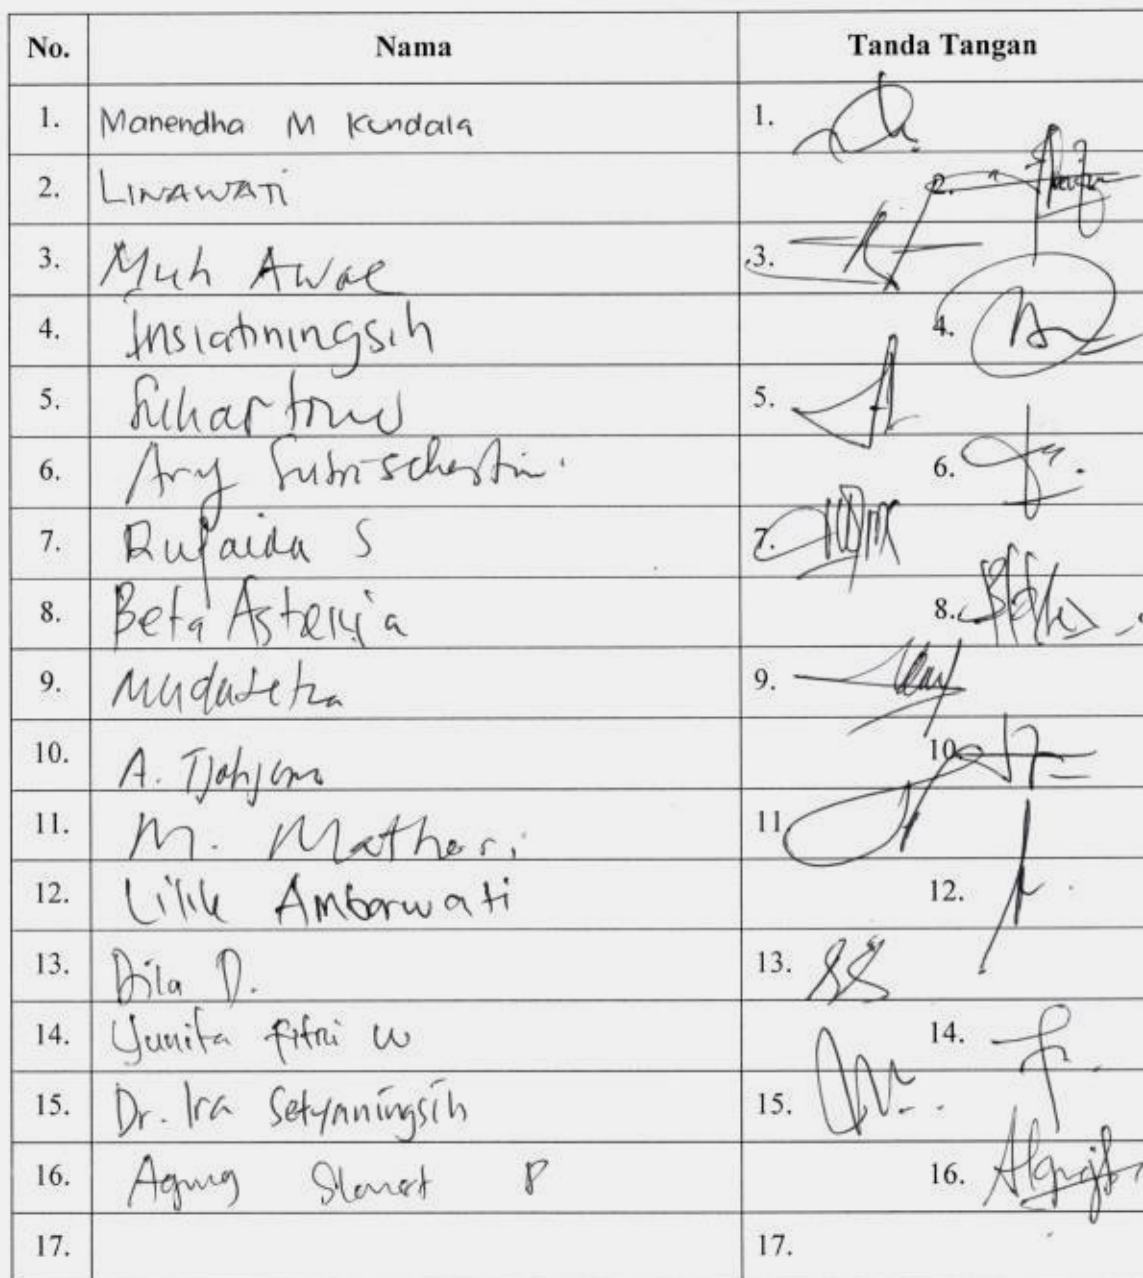 No. Nama Tanda Tangan
1. Manendha M Kundala 1.
2. LINAWATI 2.
3. Muh Awal 3.
4. Insiatiningsih 4.
5. Suhartono 5.
6. Ary 6.
7. Rufaida S 7.
8. Beta 8.
9. 9.
10. A. Tjahjono 10.
11. M. Mathori 11.
12. Lilik Ambarwati 12.
13. Dila D. 13.
14. Yunita Fitri W 14.
15. Dr. Ira Setyaningsih 15.
16. Agung Slamet P 16.
17. 17.